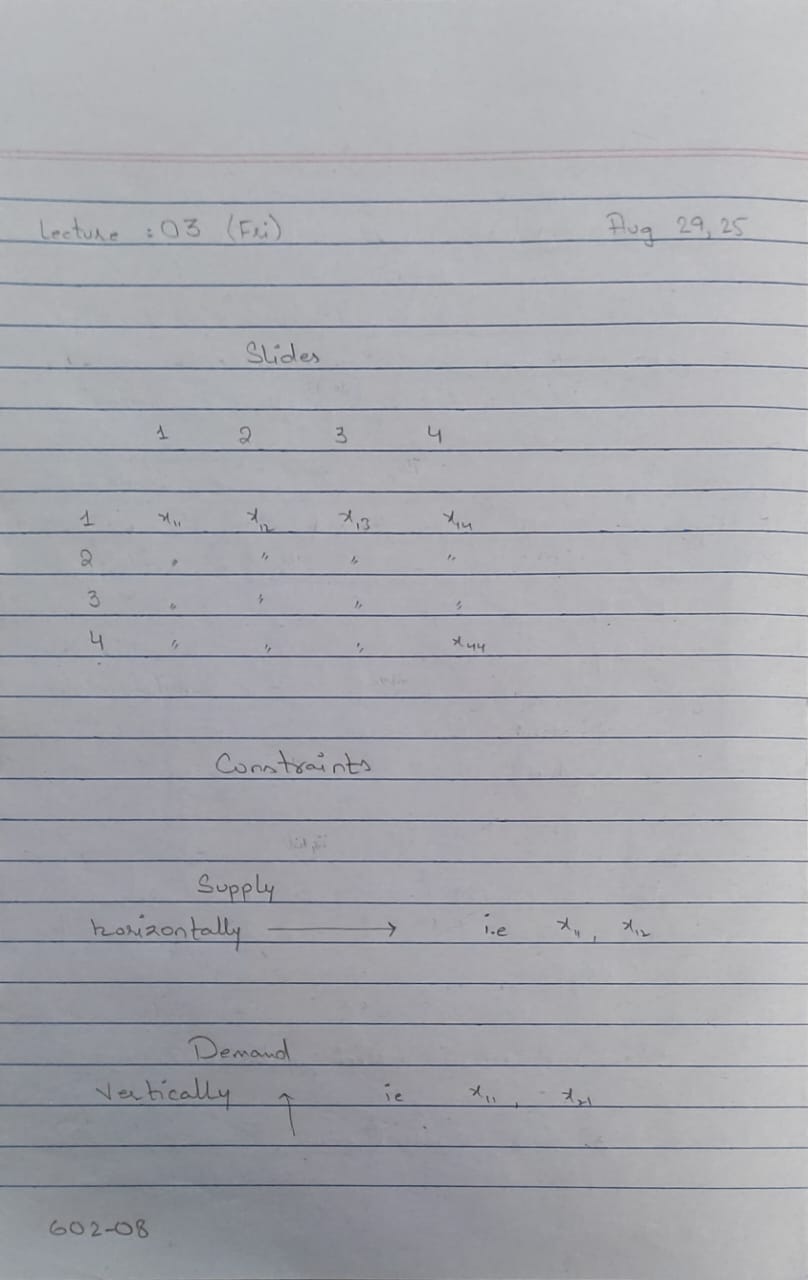 Lecture : 03 (Fri) Aug 29, 25
Slides
1 2 3 4
1 x₁₁ x₁₂ x₁₃ x₁₄
2 〃 〃 〃 〃
3 〃 〃 〃 〃
4 〃 〃 〃 x₄₄
Constraints
Supply
horizontally ⟶ i.e x₁₁, x₁₂
Demand
Vertically ↑ ie x₁₁, x₂₁
602-08